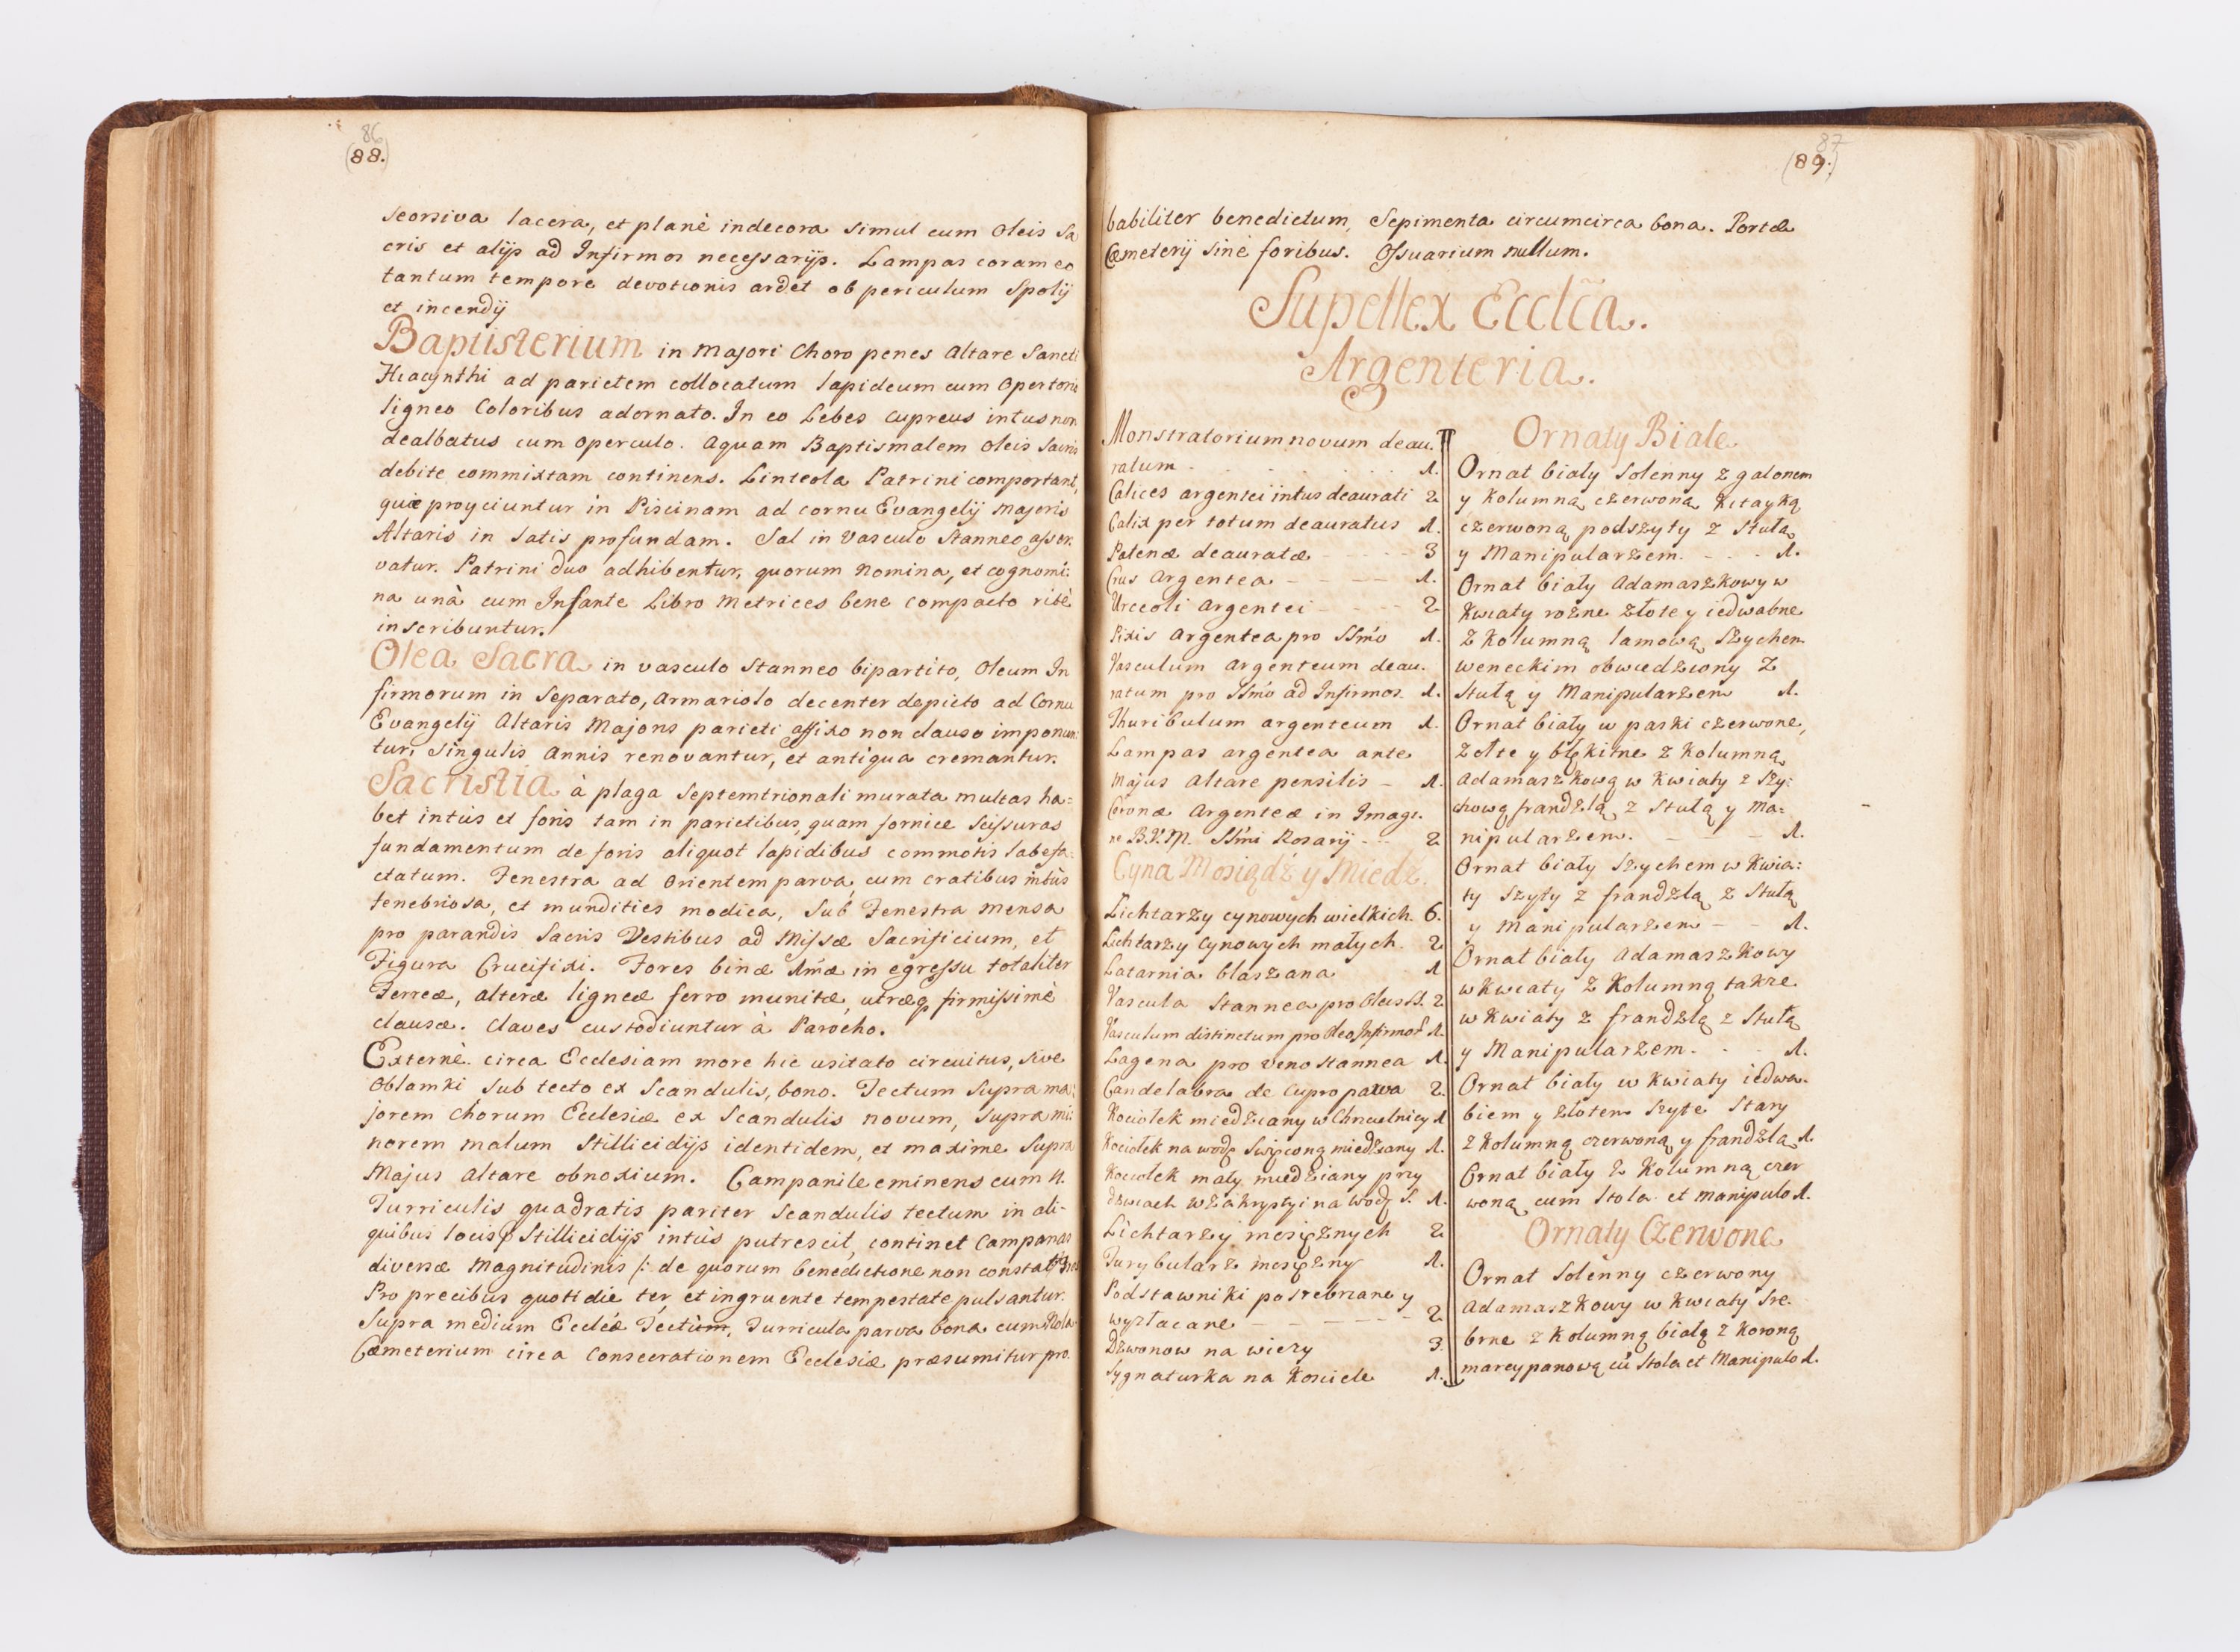 86
(88.)
seorsiva lacera, et planè indecora simul cum Oleis Sa
cris et alijs ad Infirmos necessarijs. Lampas coram eo
tantum tempore devotionis ardet ob periculum Spolij
et incendij
Baptisterium in Majori Choro penes Altare Sancti
Hiacynthi ad parietem collocatum lapideum cum Opertorio
ligneo Coloribus adornato. In eo Lebes Cupreus intus non
dealbatus cum Operculo. Aquam Baptismalem Oleis Sacris
debite commixtam continens. Linteola Patrini comportant,
quæ proyciuntur in Piscinam ad cornu Evangelij Majoris
Altaris in Satis profundam. Sal in Vasculo Stanneo asser:
vatur. Patrini duo adhibentur, quorum Nomina, et cognomi:
na unà cum Infante Libro Metrices bene compacto ritè
inscribuntur.
Olea Sacra in vasculo Stanneo bipartito, Oleum In
firmorum in Separato, Armariolo decenter depicto ad Cornu
Evangelij Altaris Majoris parieti affixo non clauso imponun:
tur, Singulis Annis renovantur, et antiqua cremantur.
Sacristia à plaga Septemtrionali murata multas ha:
bet intùs et foris tam in parietibus, quam fornice Scissuras
fundamentum de foris aliquot lapidibus commotis labefa:
ctatum. Fenestra ad Orientem parva, cum cratibus intùs
tenebriosa, et mundities modica, Sub Fenestra Mensa
pro parandis Sacris Vestibus ad Missæ Sacrificium, et
Figura Crucifixi. Fores binæ 1mæ in egressu totaliter
Ferreæ, alteræ ligneæ ferro munitæ, utræq firmissimè
clausæ. Claves custodiuntur à Parocho.
Externè circa Ecclesiam more hic usitato circuitus, sive
Oblamki Sub tecto ex Scandulis, bono. Tectum Supra ma:
jorem Chorum Ecclesiæ ex Scandulis novum, Supra mi:
norem malum Stillicidijs identidem, et maxime Supra
Majus Altare obnoxium. Campanile eminens cum 4.
Turriculis quadratis pariter Scandulis tectum in ali-
quibus locis Stillicidijs intùs putrescit, continet Campanas
diversæ Magnitudinis /: de quorum benedictione non constat
Pro precibus quotidie ter, et ingruente tempestate pulsantur.
Supra medium Eccliæ Tectum, Turricula parva bona cum Nola.
Cæmeterium circa Consecrationem Ecclesiæ præsumitur pro
87
(89.)
babiliter benedictum, Sepimenta circumcirca bona. Portæ
Cæmeterij Sine foribus. Ossuarium nullum.
Supellex Ecclca.
Argenteria.
Monstratorium novum deau:
ratum 1.
Calices argentei intus deaurati 2
Calix per totum deauratus 1.
Patenæ deauratæ - - - - 3
Crux Argentea - - - - 1.
Urceoli Argentei - - - - 2
Pixis Argentea pro SSmo 1.
Vasculum Argenteum deau:
ratum pro SSmo ad Infirmos. 1.
Thuribulum argenteum 1.
Lampas argentea ante
Majus Altare pensilis - 1.
Coronæ Argenteæ in Imagi:
ne B.V.M. SSmi Rosarij - - 2
Cyna Mosiądź y Miedź.
Lichtarzy cynowych wielkich. 6.
Lichtarzy Cynowych małych. 2
Latarnia blaszana 1
Vascula Stannea pro Oleis SS. 2
Vasculum distinctum pro Oleo Infirmor 1.
Lagena pro Veno Stannea 1.
Candelabra de Cupro parva 2.
Kociołek miedziany w Chrcielnicy 1
Kociołek na wodę Swięconą miedziany 1.
Kociołek mały miedziany przy
dzwiach w Zakrystyi na Wodę S. 1.
Lichtarzy mosiężnych 2
Turybularz mosiężny 1.
Podstawniki posrebrzane y
wyzłacane - - - - - - 2
Dzwonow na wiezy 3
Sygnaturka na Kosciele 1.
Ornaty Białe
Ornat biały Solenny z galonem
y Kolumną czerwoną Kitayką
czerwoną podszyty z Stułą
y Manipularzem. - - - 1.
Ornat biały Adamaszkowy w
Kwiaty rożne złote y iedwabne
z Kolumną lamową, Szychem
weneckim obwiedziony z
Stułą y Manipularzem 1.
Ornat biały w paski czerwone,
żołte y błękitne z Kolumną
Adamaszkową w Kwiaty z Szy:
chową frandzlą z Stułą y Ma:
nipularzem. - - 1.
Ornat biały Szychem w Kwia:
ty Szyty z frandzlą z Stułą
y Manipularzem - - 1.
Ornat biały Adamaszkowy
w Kwiaty z Kolumną takze
w Kwiaty z frandzlą z Stułą
y Manipularzem. 1.
Ornat biały w Kwiaty iedwa:
biem y złotem Szyte Stary
z Kolumną czerwoną y frandzlą 1.
Ornat biały z Kolumną czer
woną cum Stola et Manipulo 1.
Ornaty Czerwone
Ornat Solenny czerwony
Adamaszkowy w Kwiaty Sre:
brne z Kolumną białą z Koroną
marcypanową cũ Stola et Manipulo 1.